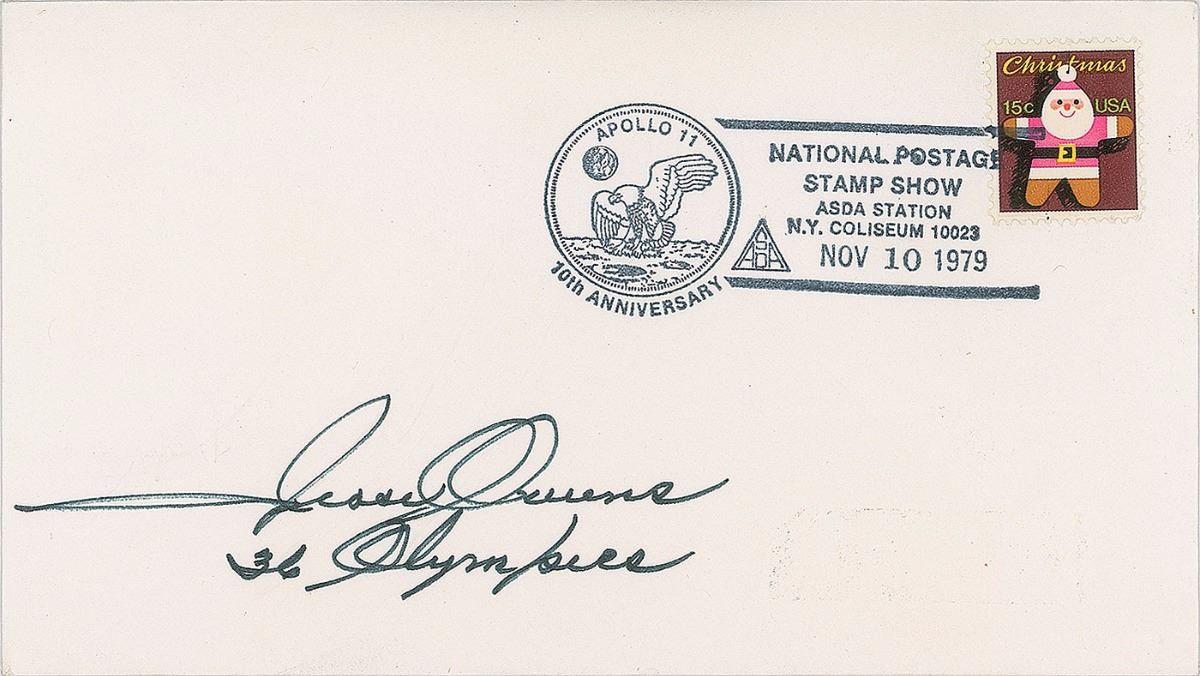 Christmas
15c USA
APOLLO 11
10th ANNIVERSARY
NATIONAL POSTAGE
STAMP SHOW
ASDA STATION
N.Y. COLISEUM 10023
ASDA
NOV 10 1979
Jesse Owens
36 Olympics